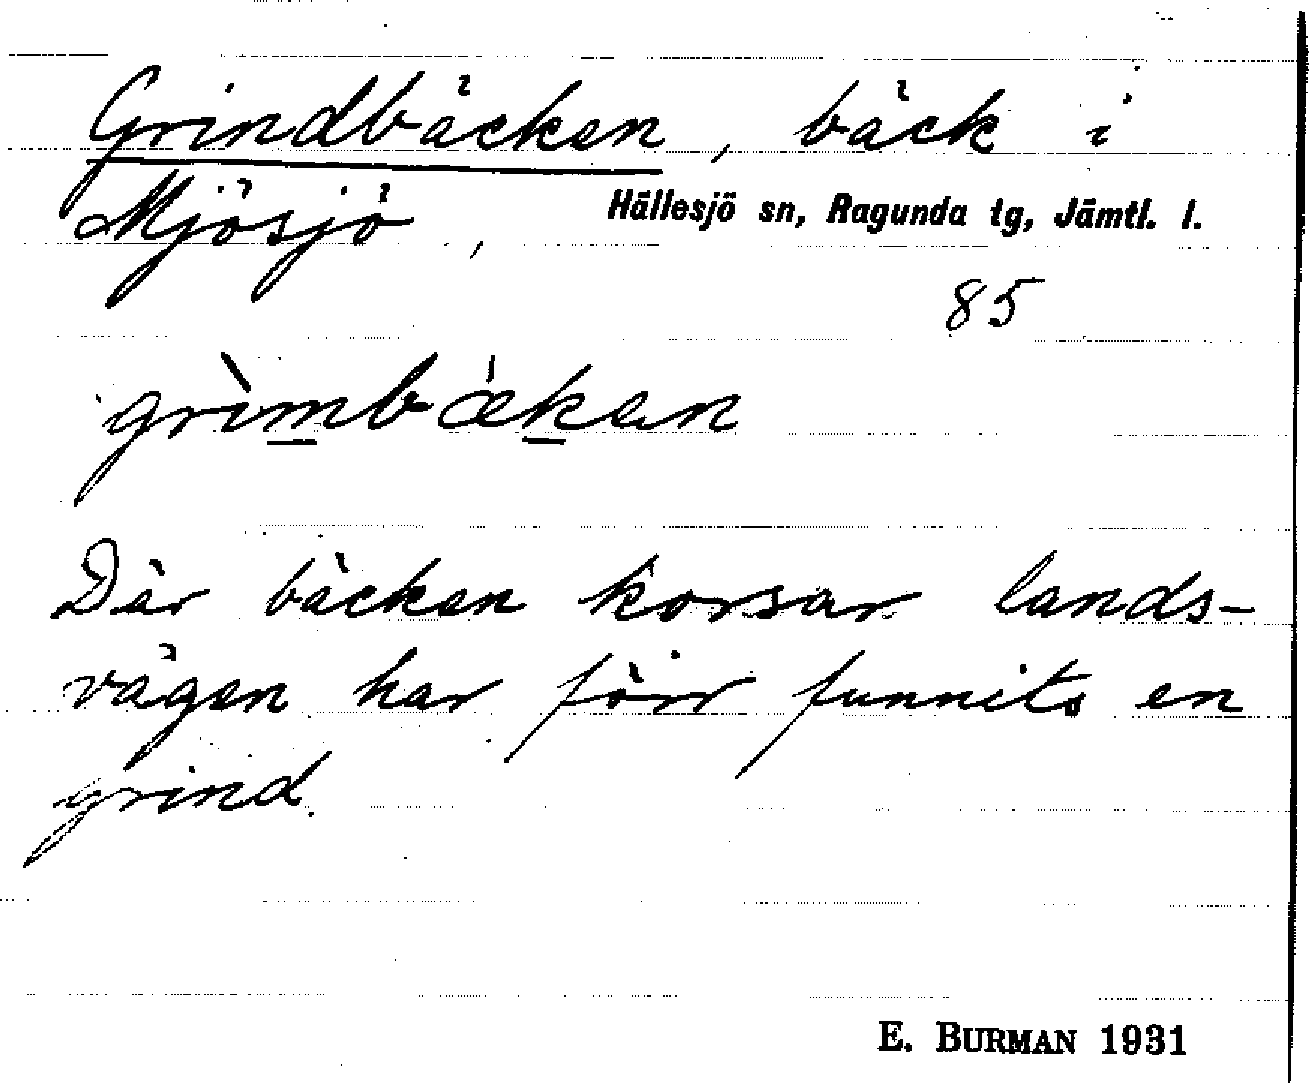 Grindbäcken, bäck i
Mjösjö, Hällesjö sn, Ragunda tg, Jämtl. l.
85
grìmbǽkan
Där bäcken korsar lands-
vägen har förr funnits en
grind.
E. BURMAN 1931